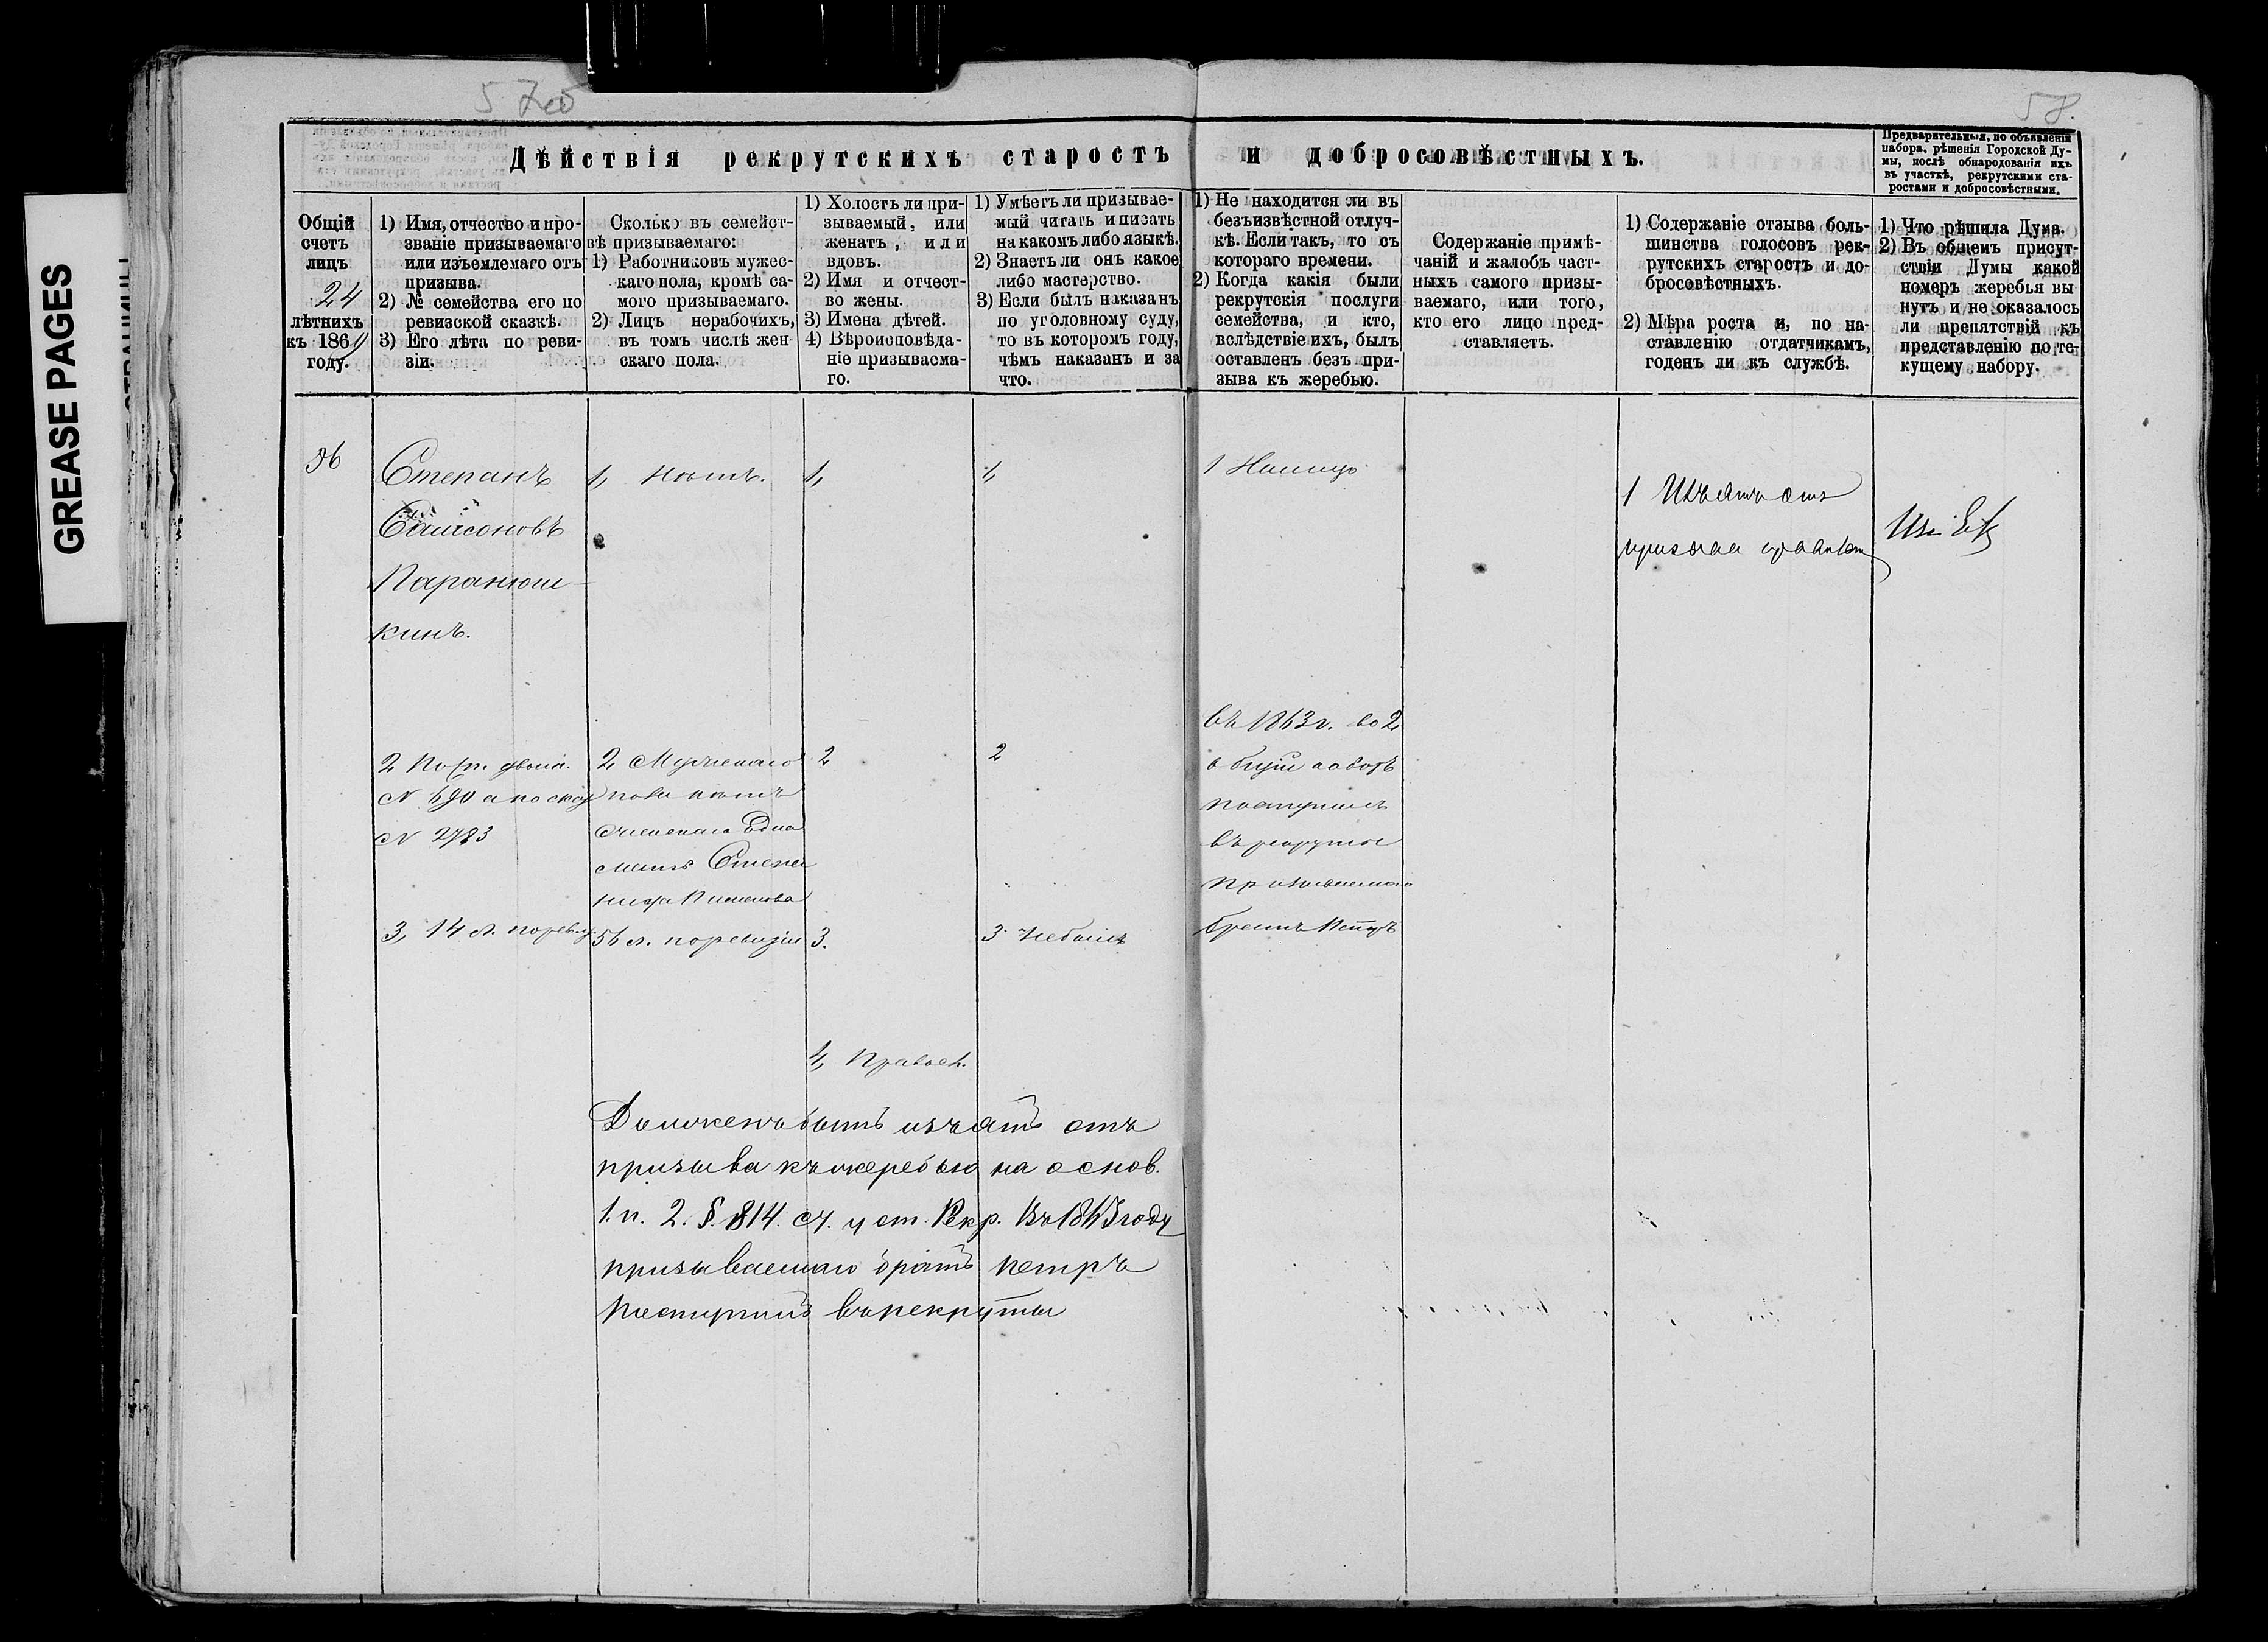 57об
58.
GREASE PAGES
Дѣйствія рекрутскихъ старостъ и добросовѣстныхъ.
Предварительныя, по объявленіи
набора, рѣшенія Городской Ду-
мы, послѣ обнародованія ихъ
въ участкѣ, рекрутскими ста-
ростами и добросовѣстными.
Общій
счетъ
лицъ
24
лѣтнихъ
къ 1869
году.
1) Имя, отчество и про-
званіе призываемаго
или изъемлемаго отъ
призыва.
2) № семейства его по
ревизской сказкѣ.
3) Его лѣта по реви-
зіи.
Сколько въ семейст-
вѣ призываемаго:
1) Работниковъ мужес-
каго пола, кромѣ са-
мого призываемаго.
2) Лицъ нерабочихъ,
въ томъ числѣ жен
скаго пола.
1) Холостъ ли при-
зываемый, или
женатъ, или
вдовъ.
2) Имя и отчест-
во жены.
3) Имена дѣтей.
4) Вѣроисповѣда-
ніе призываема-
го.
1) Умѣетъ ли призывае-
мый читать и писать
на какомъ либо языкѣ.
2) Знаетъ ли онъ какое
либо мастерство.
3) Если былъ наказанъ
по уголовному суду,
то въ которомъ году,
чѣмъ наказанъ и за
что.
1) Не находится ли въ
безъизвѣстной отлуч-
кѣ. Если такъ, то съ
котораго времени.
2) Когда какія были
рекрутскія послуги
семейства, и кто,
вслѣдствіе ихъ, былъ
оставленъ безъ при-
зыва къ жеребью.
Содержаніе примѣ-
чаній и жалобъ част-
ныхъ самого призы-
ваемаго, или того,
кто его лицо пред-
ставляетъ.
1) Содержаніе отзыва боль-
шинства голосовъ рек-
рутскихъ старостъ и до-
бросовѣстныхъ.
2) Мѣра роста и, по на-
ставленію отдатчикамъ,
годенъ ли къ службѣ.
1) Что рѣшила Дума.
2) Въ общемъ присут-
ствіи Думы какой
номеръ жеребья вы
нутъ и не оказалось
ли препятствій къ
представленію по те-
кущему набору.
36
Степанъ
Самсоновъ
Паранюш-
кинъ.
2
№ 690 а по сказ
№ 2783
3, 14 л. по ревиз
1, нѣтъ.
2, Мужескаго
пола нѣтъ
женскаго Одна
мать Степа
нида Пименова
56 л. по ревизіи
1,
2
3.
4, Правосл.
1,
2
3 не былъ
1 Налицо
въ 1863 г. во 2
поступилъ
въ рекруты
призываемаго
братъ Петръ
1 Изъятъ отъ
призыва
Должен быть изъятъ отъ
призыва къ жеребью на основ.
1. п. 2. §. 814. ст. уст. Рекр. Въ 1863 году
призываемаго братъ Петръ
Поступилъ въ рекруты